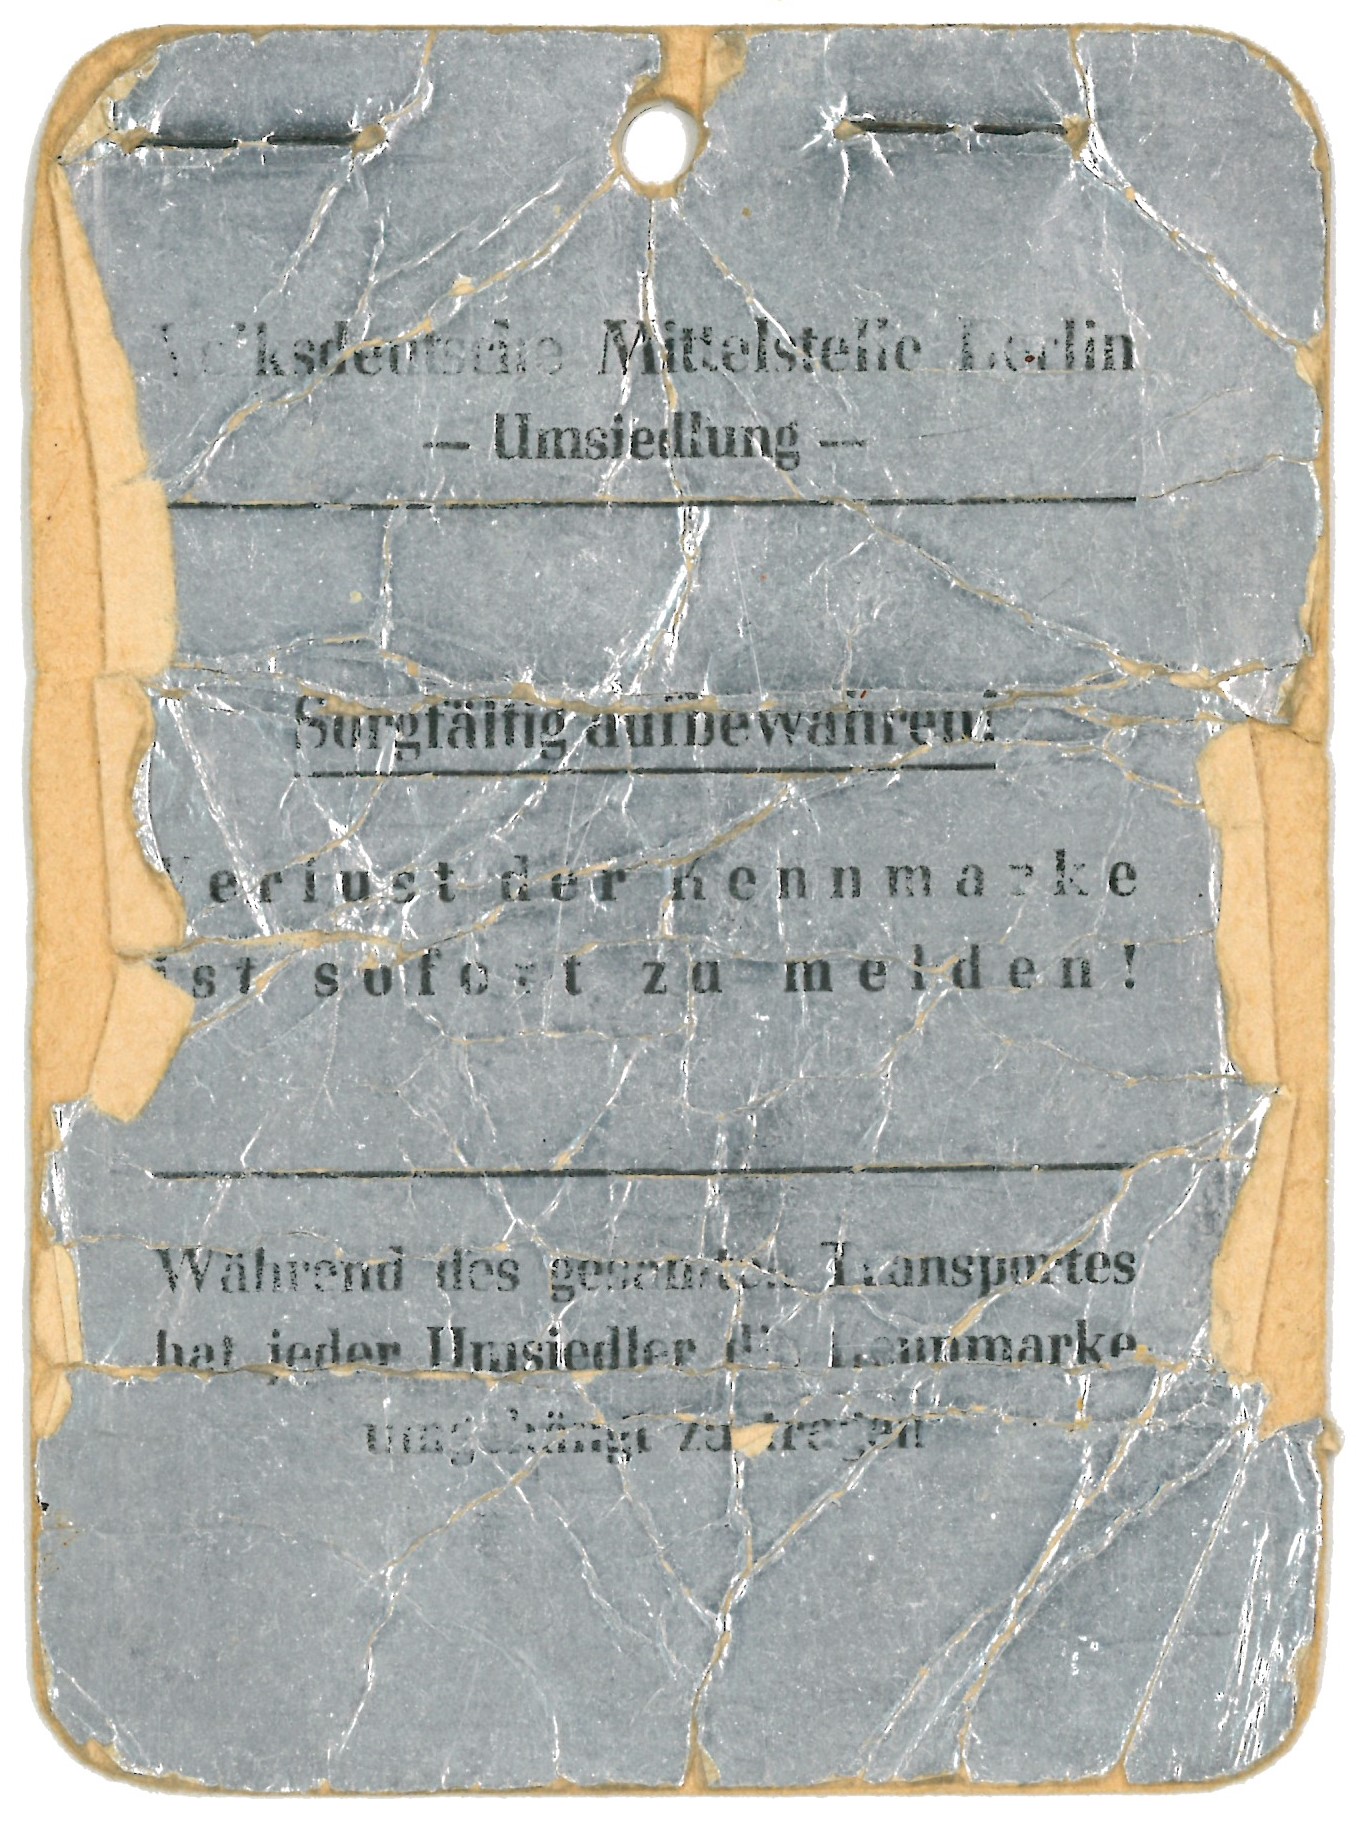 Volksdeutsche Mittelstelle Berlin
— Umsiedlung —
Sorgfältig aufbewahren!
Verlust der Kennmarke
ist sofort zu melden!
Während des gesamten Transportes
hat jeder Umsiedler die Kennmarke
umgehängt zu tragen